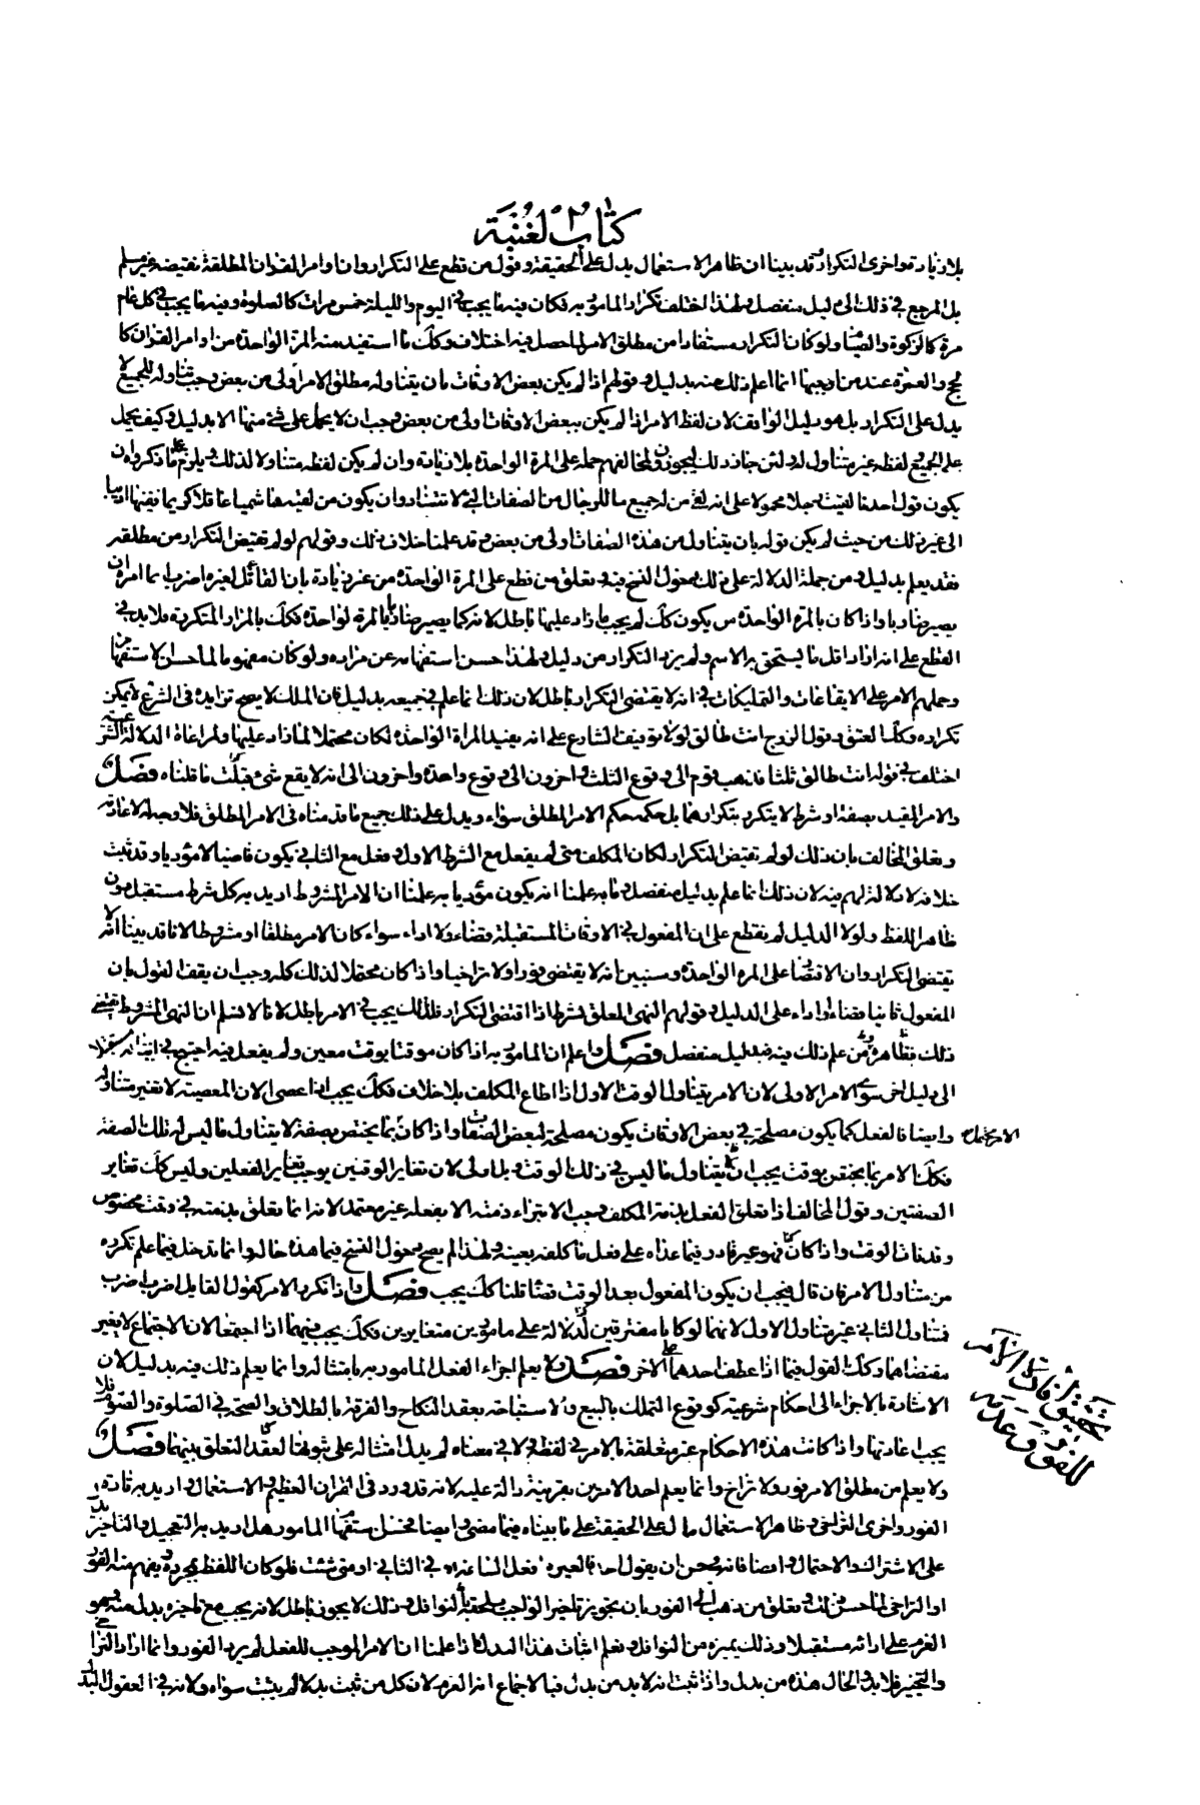 كتاب الغنية
بلا زيادة واخرى التكرار وقد بينا ان ظاهر الاستعمال يدل على الحقيقة وقول من قطع على التكرار وان اوامر القران المطلقة تقتضيه غير مسلم
بل المرجع في ذلك الى دليل منفصل ولهذا اختلف تكرار المامور به فكان فيه ما يجب في اليوم والليلة خمس مرات كالصلوة وفيه ما يجب في كل عام
مرة كالزكوة والصيام ولو كان التكرار مستفادا من مطلق الامر لما حصل فيه اختلاف وكك ما استفيد منه المرة الواحدة من اوامر القران كا
لحج والعمرة عند من اوجبها انما اعلم ذلك منه بدليل وقولهم اذا لم يكن بعض الاوقات بان يتناوله مطلق الامر اولى من بعض وجب تناوله للجميع لا
يدل على التكرار بل هو دليل الواقف لان لفظ الامر اذا لم يكن ببعض الاوقات اولى من بعض وجب ان لا يحمل على شئ منها الا بدليل وكيف يحمل
على الجميع ولفظه غير متناول له ولئن جاز ذلك ليجوزن لمخالفهم حمله على المرة الواحدة بلا زيادة وان لم يكن لفظه متناولا لذلك ويلزم على ما ذكروه ان
يكون قول احدنا لقيت رجلا محمولا على انه لقي من له جميع ما للرجال من الصفات التي لا تتضاد وان يكون من لقيه هاشميا عاقلا كريما فقيها اديبا
الى غير ذلك من حيث لم يكن قوله بان يتناول من هذه الصفات اولى من بعض وقد علمنا خلاف ذلك وقولهم لو لم تقتض التكرار من مطلقه
فقد يعلم بدليل ومن جملة الدلالة على ذلك دخول النسخ فيه وتعلق من قطع على المرة الواحدة من غير زيادة بان القائل لغيره اضرب انما امره ان
يصير ضاربا واذا كان بالمرة الواحدة من يكون كك لم يجب ما زاد عليها باطل لانه كما يصير ضاربا بالمرة الواحدة فكك بالمرار المتكررة فلا بد في
القطع على انه اراد اقل ما يستحق به الاسم ولم يرد التكرار من دليل ولهذا حسن استفهامه عن مراده ولو كان مفهوما لما حسن الاستفهام
وحملهم الامر على الايقاعات والتمليكات في انه لا يقتضى التكرار باطل لان ذلك انما علم في جميعه بدليل فان الملك لا يصح تزايده فى الشرع لا يمكن
تكراره فكك العتق وقول الزوج انت طالق لولا توقيف الشارع على انه يفيد المرة الواحدة لكان محتملا لما زاد عليها ولمراعاة الدلالة الشرعية
اختلف في قوله انت طالق ثلثا فذهب قوم الى وقوع الثلث واخرون الى وقوع واحدة واخرون الى انه لا يقع شئ فثبت ما قلناه فصل
والامر المقيد بصفة او شرط لا يتكرر بتكرارهما بل حكمه حكم الامر المطلق سواء ويدل على ذلك جميع ما قدمناه فى الامر المطلق فلا وجه لاعادته
وتعلق المخالف بان ذلك لو لم تقتض التكرار لكان المكلف متى لم يفعل مع الشرط الاول وفعل مع الثاني يكون قاضيا لا مؤديا وقد ثبت
خلافه لا دلالة لهم فيه لان ذلك انما علم بدليل منفصل وما به علمنا انه يكون مؤديا به علمنا ان الامر المشروط اريد به كل شرط مستقبل دون
ظاهر اللفظ ولولا الدليل لم نقطع على ان المفعول في الاوقات المستقبلة قضاء ولا اداء سواء كان الامر مطلقا او مشروطا لانا قد بينا انه لا
يقتضى التكرار وان لا اقتضا على المرة الواحدة وسنبين انه لا يقتضى فورا ولا تراخيا واذا كان محتملا لذلك كله وجب ان يقف القول بان
المفعول ثانيا قضاء او اداء على الدليل وقولهم النهى المعلق بشرط اذا اقتضى التكرار فكذلك يجب في الامر باطل لانا لا نسلم ان النهى المشروط يقتضى
ذلك بظاهره ومن علم ذلك فيه فبدليل منفصل فصل واعلم ان المامور به اذا كان موقتا بوقت معين ولم يفعل فيه احتيج في ايقاعه مستقبلا
الى دليل اخر سوى الامر الاولى لان الامر يتناول الوقت الاول اذا اطاع المكلف بلا خلاف فكك يجب اذا عصى لان المعصية لا تغير متناوله
وايضا فالفعل كما يكون مصلحة في بعض الاوقات يكون مصلحة لبعض الصفات واذا كان ما يختص بصفة لا يتناول ما ليس له تلك الصفة
فكك الامر بما يختص بوقت يجب ان لا يتناول ما ليس في ذلك الوقت بل اولى لان تغاير الوقتين يوجب تغاير الفعلين وليس كك تغاير
الصفتين وقول المخالف اذا تعلق الفعل بذمة المكلف وجب الا تبراء ذمته الا بفعله غير معتمد لانه انما تعلق بذمته في وقت مخصوص
وقد فات الوقت واذا كان كك فهو غير قادر فيما عداه على فعل ما كلفه بعينه ولهذا لم يصح دخول النسخ فيما هذه حاله وانما تدخل فيما علم تكرره
من متناول الامر فان قال فيجب ان يكون المفعول بعد الوقت قضا قلنا كك يجب فصل واذا تكرر الامر كقول القايل اضرب اضرب
فمتناول الثاني غير متناول الاول لانهما لو كانا مفترقين لدلالة على مامورين متغايرين فكك يجب فيهما اذا اجتمعا لان الاجتماع لا يغير
مقتضاهما وكك القول فيما اذا عطف احدهما على الاخر فصل ولا يعلم اجزاء الفعل المامور به بامتثاله وانما يعلم ذلك فيه بدليل لان
الاشارة بالاجزاء الى احكام شرعية كوقوع التملك بالبيع والاستباحة بعقد النكاح والفرقة بالطلاق والصحة في الصلوة والصوم فلا
يجب اعادتها واذا كانت هذه الاحكام غير متعلقة بالامر في لفظه ولا في معناه لم يدل امتثاله على ثبوتها لفقد التعلق بينهما فصل
ولا يعلم من مطلق الامر فور ولا تراخ وانما يعلم احد الامرين بقرينة دالة عليه لانه قد ورد فى القران العظيم والاستعمال واريد به تارة
الفور واخرى التراخى وظاهر الاستعمال دال على الحقيقة على ما بيناه فيما مضى وايضا يحسن استفهام المامور هل اريد به التعجيل والتاخير
على الاشتراك والاحتمال وايضا فانه يحسن ان يقول احدنا لغيره افعل الساعة او في الثاني او متى شئت فلو كان اللفظ بمجرده يفهم منه الفور
او التراخى لما حسن ذلك وتعلق من ذهب الى الفور بان تجويز تاخير الواجب يلحقه بالنوافل وذلك لا يجوز باطل لانه يجب مع تاخيره بدل منه وهو
العزم على ادائه مستقبلا وذلك يميزه من النوافل ونعلم اثبات هذا البدل اذا علمنا ان الامر الموجب للفعل لم يرد الفور وانما اراد التراخى
والتخيير فلا بد والحال هذه من بدل واذا ثبت انه لا بد من بدل فبالاجماع انه العزم لان كل من ثبت بدلا لم يثبت سواه ولانه في العقول البدل
تحقيق افادة الامر
للفور وعدمه